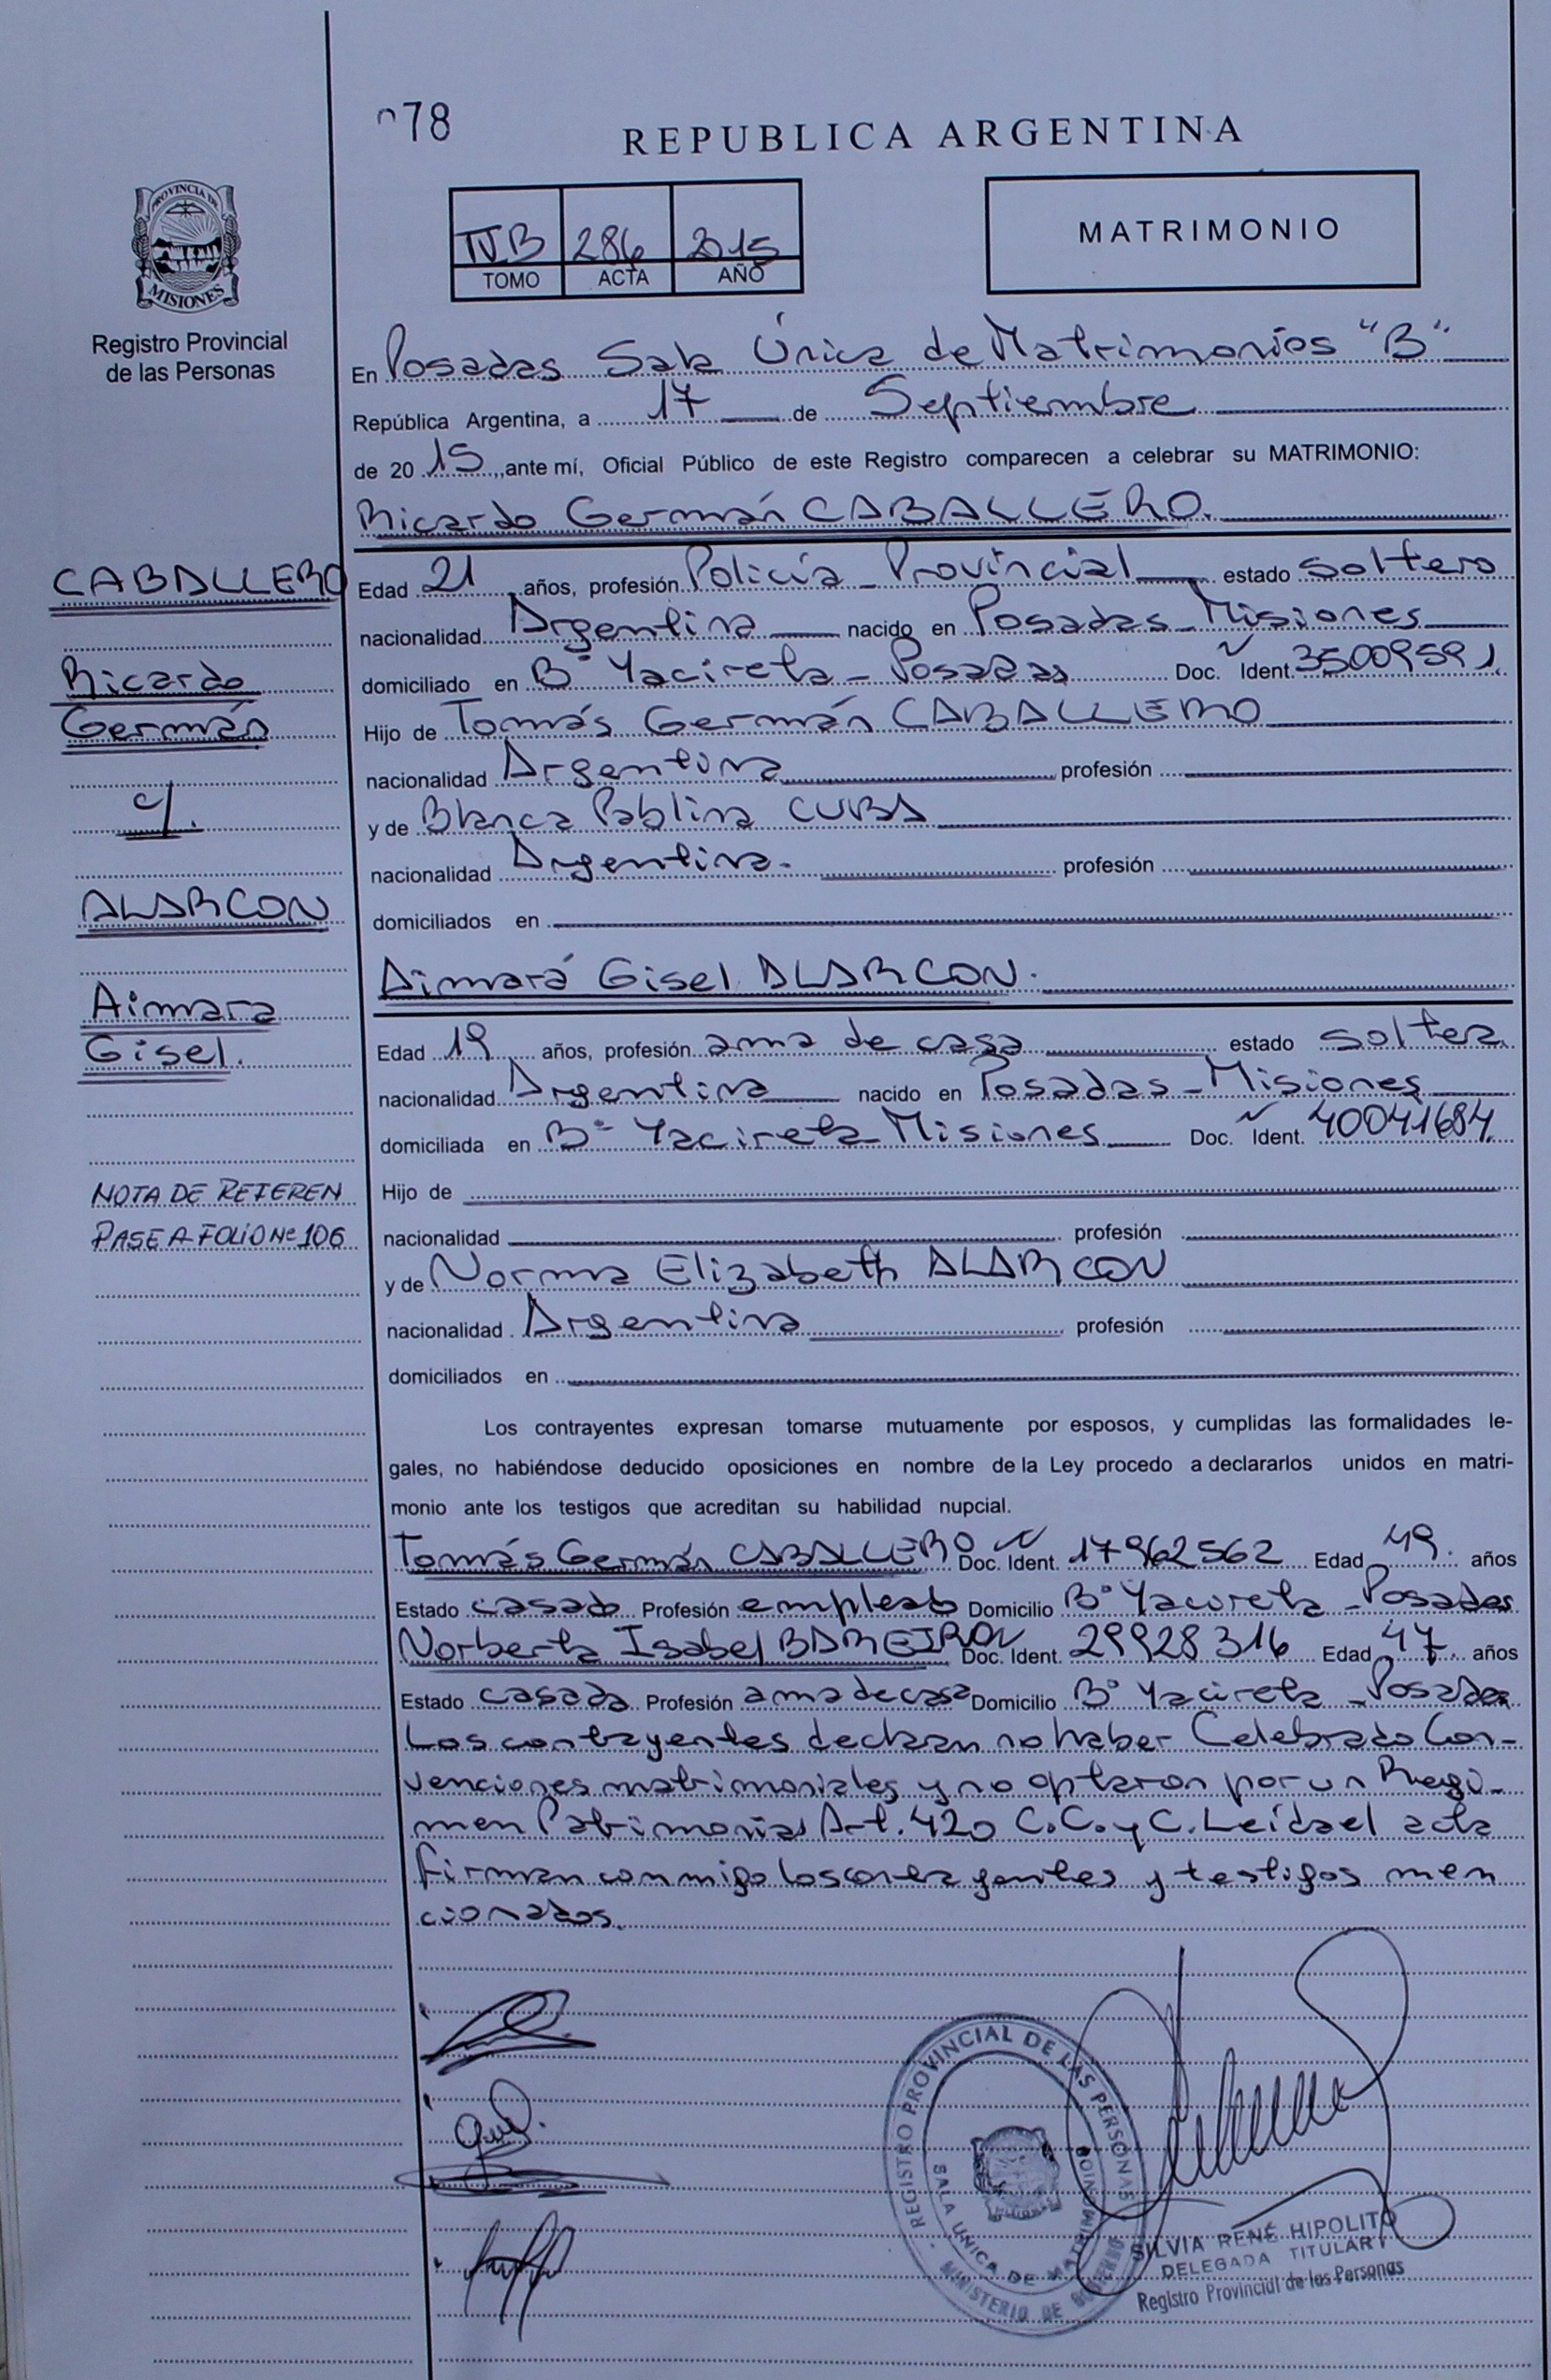 078
REPUBLICA ARGENTINA
PROVINCIA DE
MISIONES
Registro Provincial
de las Personas
IV B 286 2015
TOMO ACTA AÑO
MATRIMONIO
En Posadas Sala Única de Matrimonios "B"
República Argentina, a 17 de Septiembre
de 20 15, ante mí, Oficial Público de este Registro comparecen a celebrar su MATRIMONIO:
Ricardo Germán CABALLERO.
CABALLERO
Ricardo
Germán
c/.
ALARCON
Aimara
Gisel.
NOTA DE REFEREN
PASE A FOLIO Nº 106
Edad 21 años, profesión Policía Provincial estado soltero
nacionalidad Argentina nacido en Posadas - Misiones
domiciliado en Bº Yacireta - Posadas Doc. Ident. 35009591.
Hijo de Tomás Germán CABALLERO
nacionalidad Argentina profesión
y de Blanca Pablina CUBA
nacionalidad Argentina. profesión
domiciliados en
Aimará Gisel ALARCON.
Edad 19 años, profesión ama de casa estado soltera
nacionalidad Argentina nacido en Posadas - Misiones
domiciliada en Bº Yacireta Misiones Doc. Ident. 40041684.
Hijo de
nacionalidad profesión
y de Norma Elizabeth ALARCON
nacionalidad Argentina profesión
domiciliados en
Los contrayentes expresan tomarse mutuamente por esposos, y cumplidas las formalidades le-
gales, no habiéndose deducido oposiciones en nombre de la Ley procedo a declararlos unidos en matri-
monio ante los testigos que acreditan su habilidad nupcial.
Tomás Germán CABALLERO Doc. Ident. 17962562 Edad 49. años
Estado casado Profesión empleado Domicilio Bº Yacireta - Posadas
Norberta Isabel BAREIRO Doc. Ident. 29928316 Edad 47. años
Estado casada Profesión ama de casa Domicilio Bº Yacireta - Posadas
Los contrayentes declaran no haber Celebrado Con-
venciones matrimoniales y no optaron por un Regi-
men Patrimonial Art. 420 C.C. y C. Leída el acta
firman conmigo los contrayentes y testigos men
cionados.
REGISTRO PROVINCIAL DE LAS PERSONAS
SALA UNICA DE MATRIMONIOS
MINISTERIO DE GOBIERNO
SILVIA RENÉ HIPOLITO
DELEGADA TITULAR
Registro Provincial de las Personas